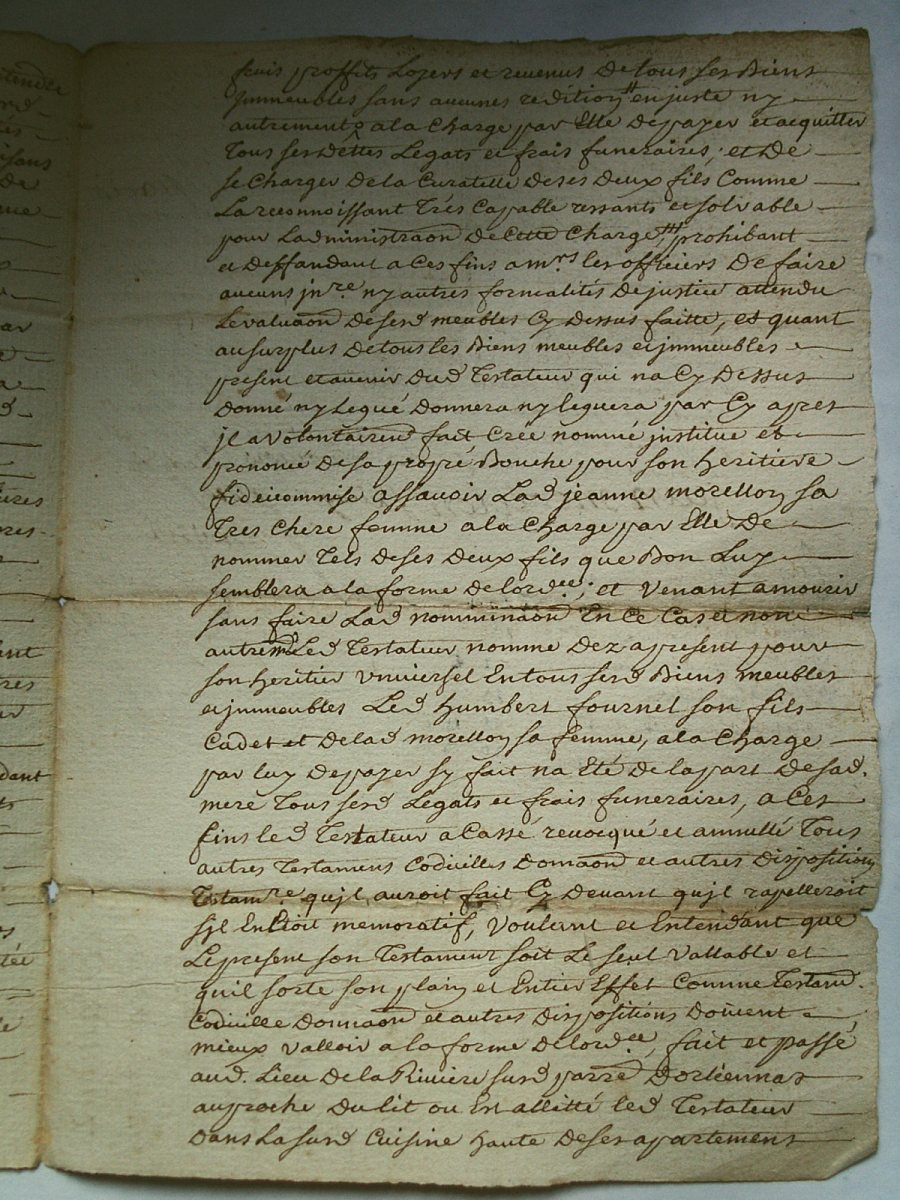 fruis proffits Loyers et revenus de tous ses Biens
jmmeubles sans aucunes redition en juste ny
autrement a la charge par Elle de payer et acquitter
tous ses dettes Legats et frais funeraires, et de
se charger de la Curatelle de ses deux fils Comme
La reconnoissant trés Capable ressants et solvable
pour Ladministraon de Cette Charge prohibant
et deffandant a Ces fins a mrs les officiers de faire
aucuns jnre ny autres formalités de justice attendu
Levaluaon de sesd meubles Cy dessus faitte, et quant
au surplus de tous les Biens meubles et jmmeubles
present et avenir dud Testateur qui na Cy dessus
donné ny Legué donnera ny leguera par Cy apres
jl a volontairemt fait, Créé nommé jnstitue et
prononcé de sa propre Bouche pour son heritiere
fideicommise assavoir Lad jeanne morellon sa
Tres chere femme a la Charge par Elle de
nommer tels de ses deux fils que Bon Luy
semblera a la forme de lordce; et venant a mourir
sans faire Lad nomminaon En Ce Cas et non
autremt Led Testateur nomme dez apresent pour
son heritier vniversel En tous sesd Biens meubles
et jmmeubles Led humbert fournel son fils
Cadet et de lad morellon sa femme, a la Charge
par luy de payer sy fait na Eté de la part de sad.
mere Tous sesd Legats et frais funeraires, a Ces
fins led Testateur a Cassé revocqué et annullé Tous
autres Testamens Codicilles Donnaon et autres dispositions
Testamre qu'jl auroit fait Cy devant qujl rapelleroit
sjl En Etoit memoratif, voulant et Entendant que
Le present son Testament soit Le seul vallable et
quil sorte son plain et Entier Effet Comme Testamt.
Codicille Donnaon et autres dispositions doivent
mieux valloir a la forme de lordce, fait et passé
aud. Lieu de la Riviere susd parre Dorliennas
auproche du lit ou En allitté led Testateur
dans la susd Cuisine haute de ses apartement